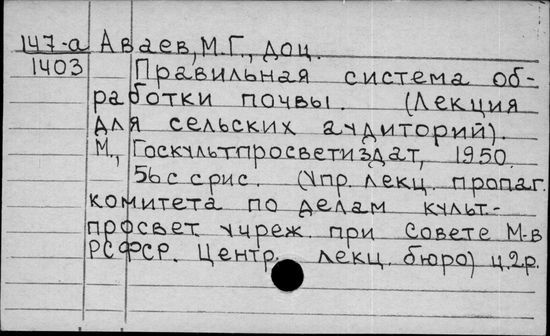 147-а Аваев, М.Г., доц.
1403 Правильная система об-
работки почвы. (Лекция
для сельских аудиторий).
М., Госкультпросветиздат, 1950.
56 с с рис. (Упр. лекц. пропаг.
комитета по делам культ-
просвет. учреж. при Совете М-в
РСФСР. Центр. лекц. бюро) ц.2р.